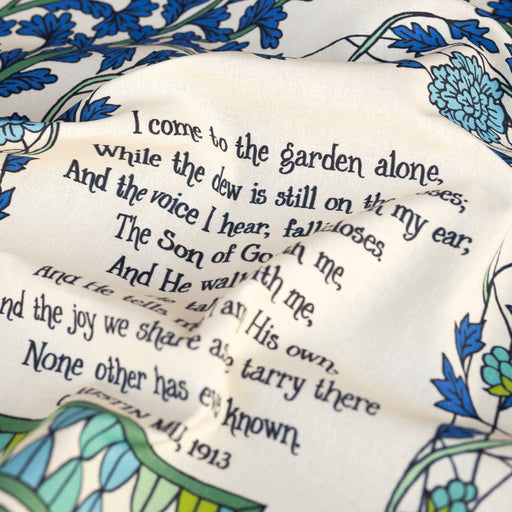 I come to the garden alone,
While the dew is still on th oses;
And the voice I hear, fall my ear,
The Son of Go loses.
And He wal th me,
And He tells h me,
tal an His own.
nd the joy we share as tarry there
None other has ev known.
1913